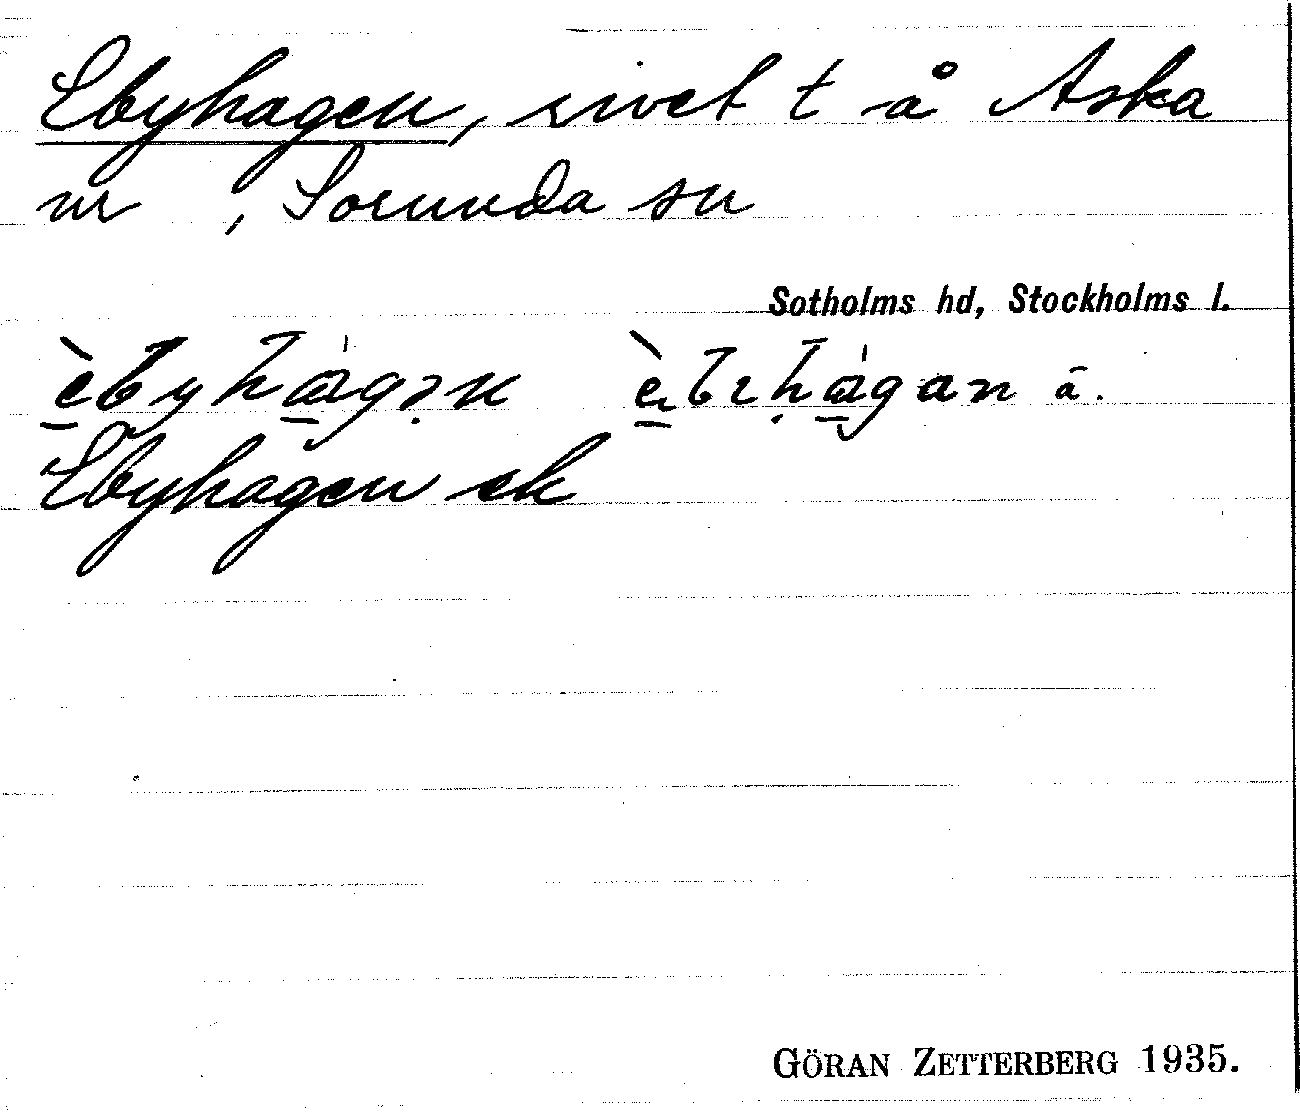 Ebyhagen, rivet t å Aska
nr , Sorunda sn
Sotholms hd, Stockholms l.
Ebyhagen ek
GÖRAN ZETTERBERG 1935.